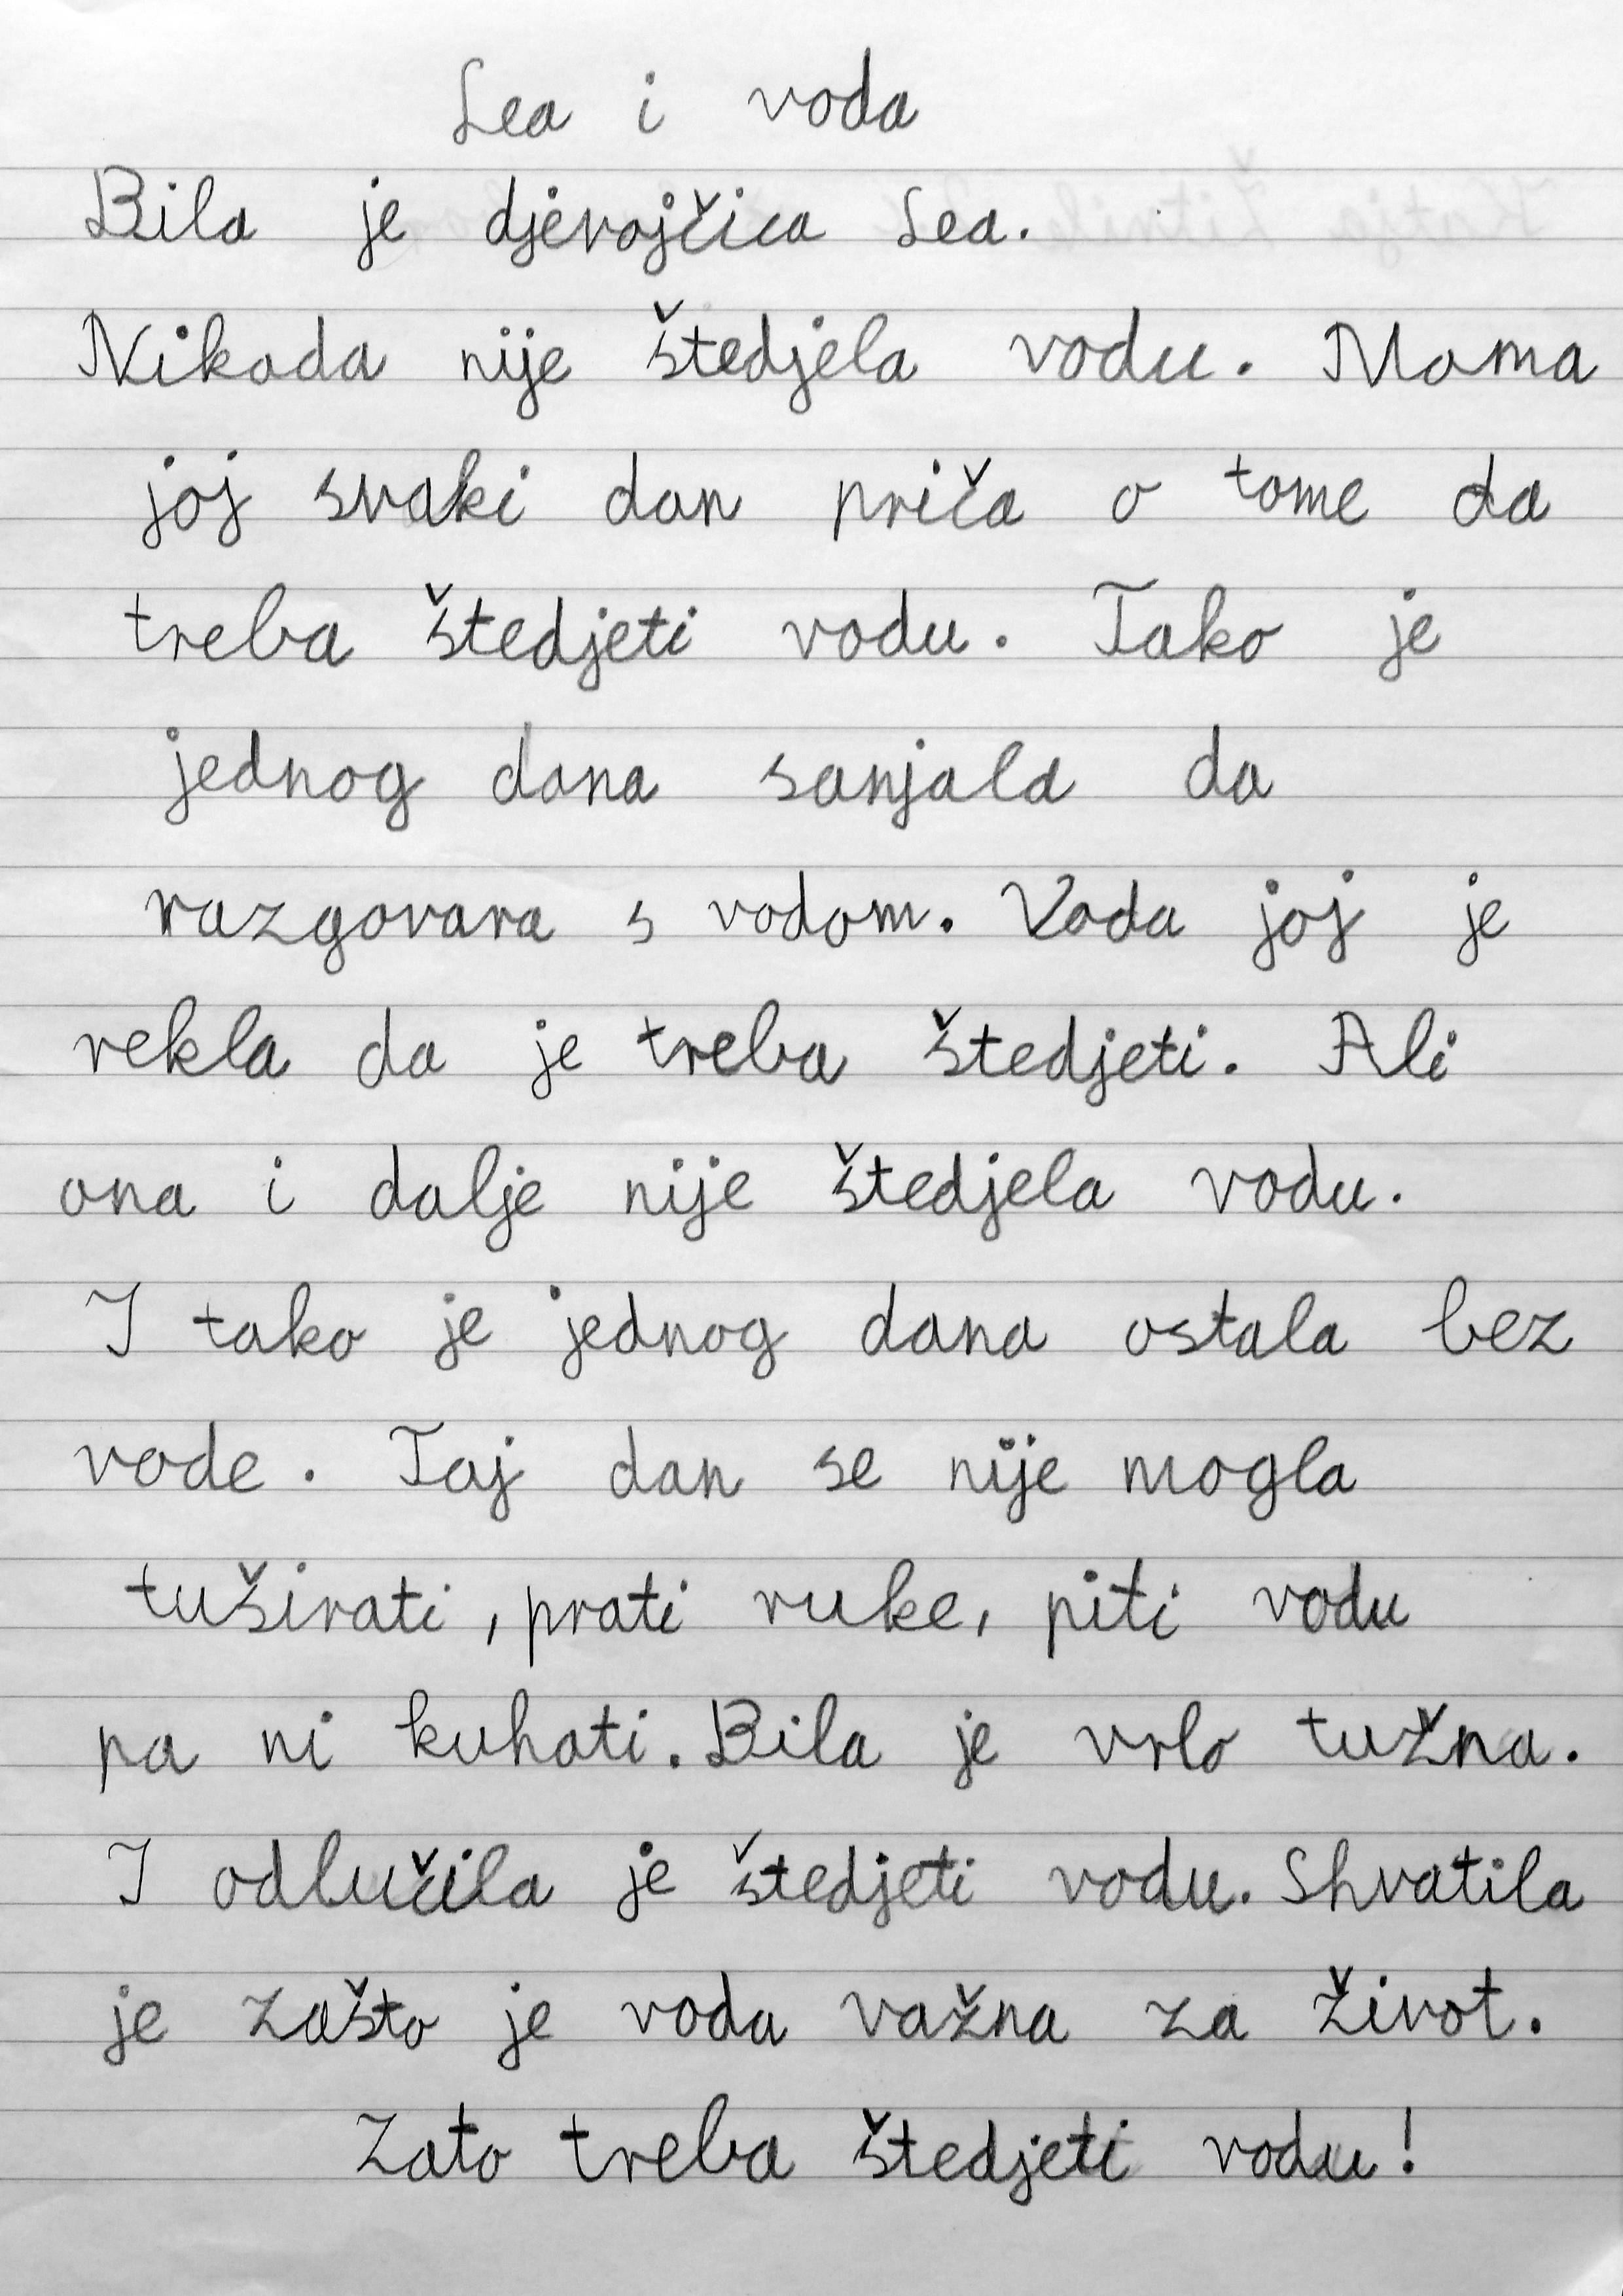 Lea i voda
Bila je djevojčica Lea.
Nikada nije štedjela vodu. Mama
joj svaki dan priča o tome da
treba štedjeti vodu. Tako je
jednog dana sanjala da
razgovara s vodom. Voda joj je
rekla da je treba štedjeti. Ali
ona i dalje nije štedjela vodu.
I tako je jednog dana ostala bez
vode. Taj dan se nije mogla
tuširati, prati ruke, piti vodu
pa ni kuhati. Bila je vrlo tužna.
I odlučila je štedjeti vodu. Shvatila
je zašto je voda važna za život.
Zato treba štedjeti vodu!